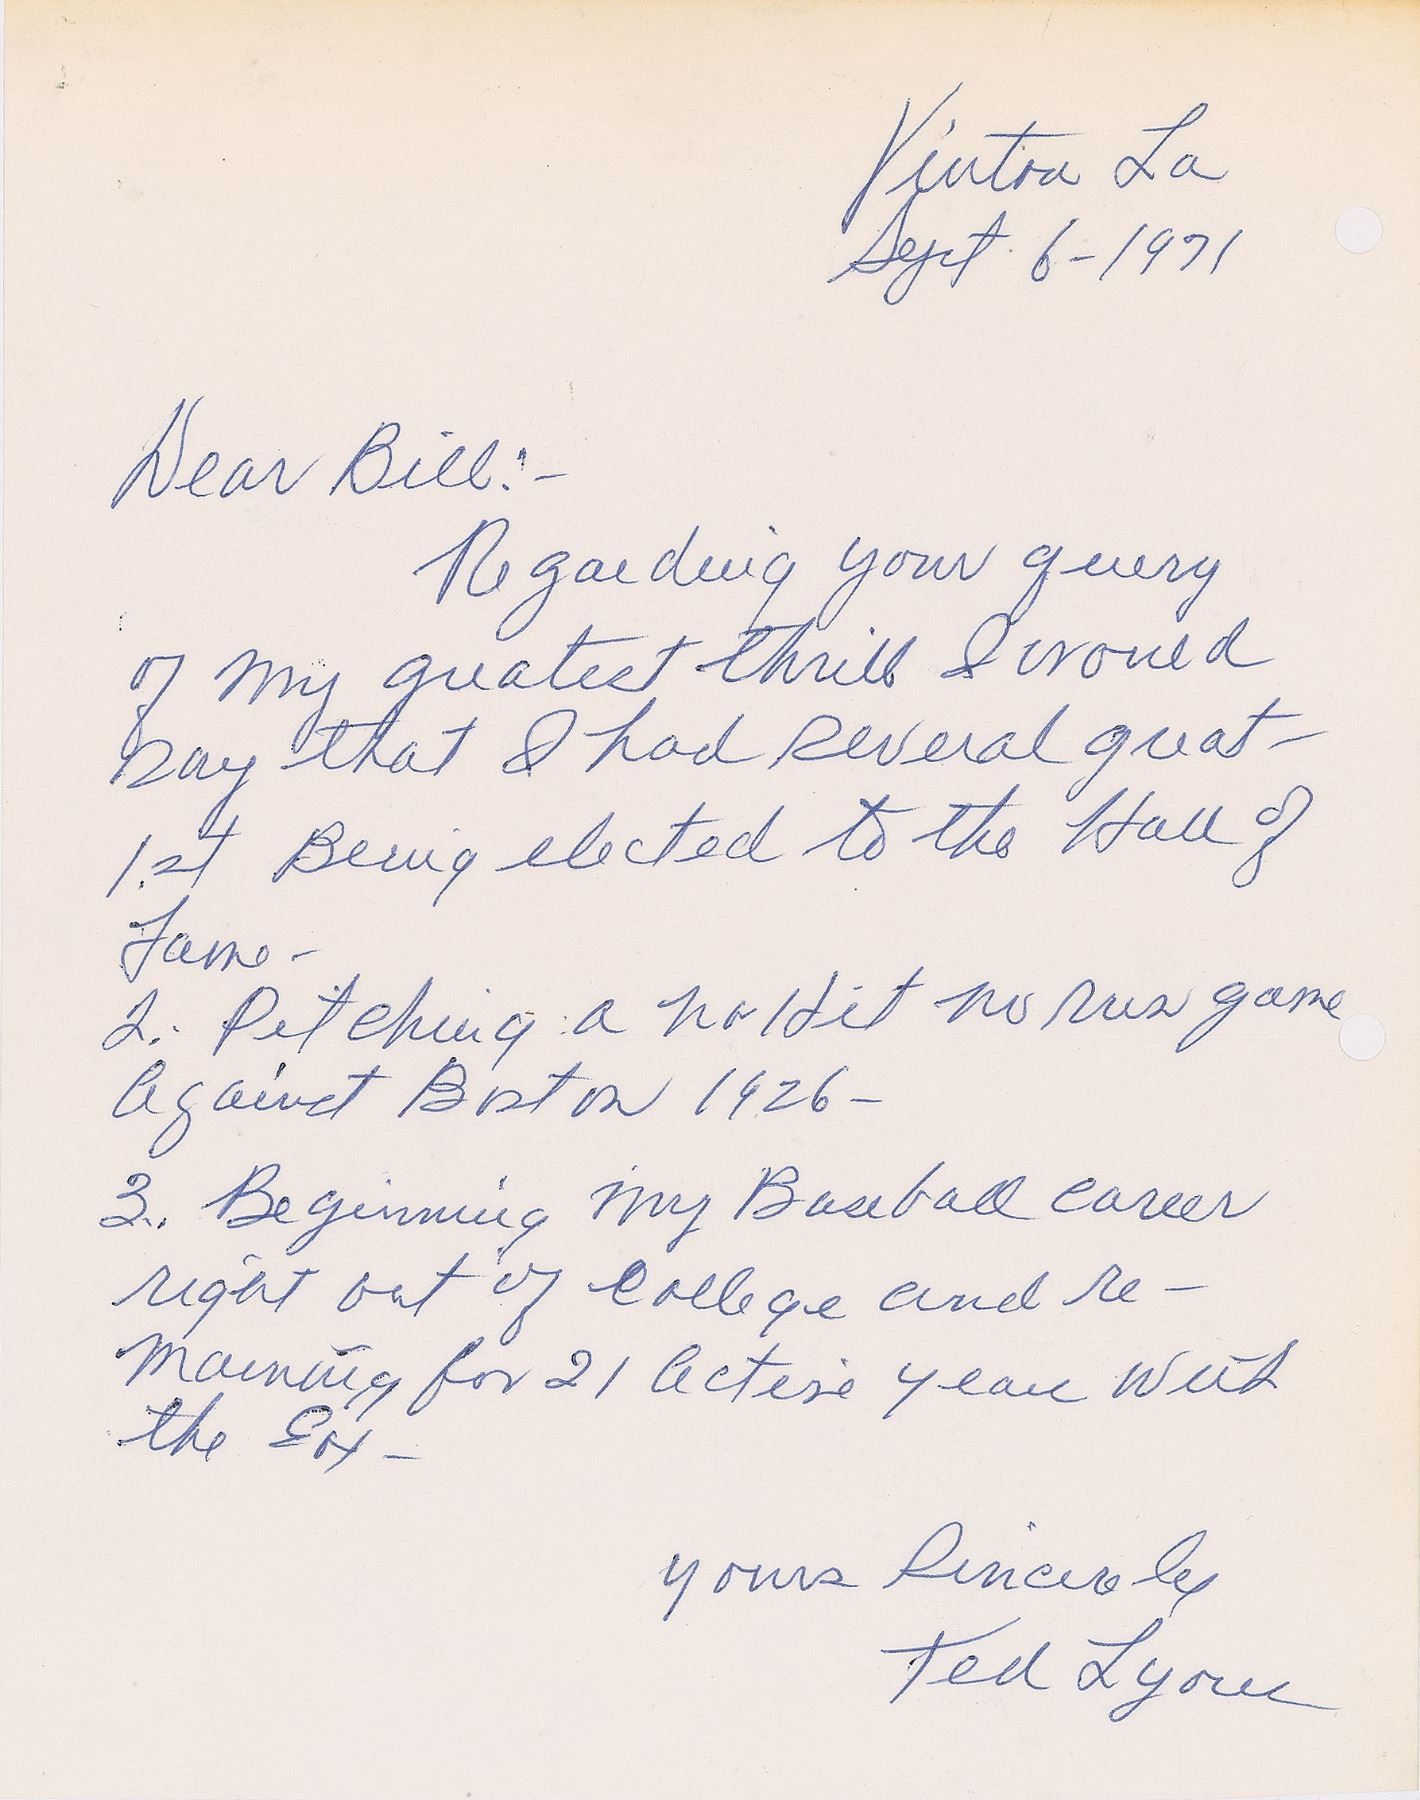 Vinton La
Sept 6-1971
Dear Bill:-
Regarding your query
of my greatest thrill I would
say that I had several great-
1st Being elected to the Hall of
Fame-
2. Pitching a no Hit no run game
against Boston 1926-
3. Beginning my Baseball career
right out of College and re-
maining for 21 active years with
the Sox-
yours Sincerely
Ted Lyons